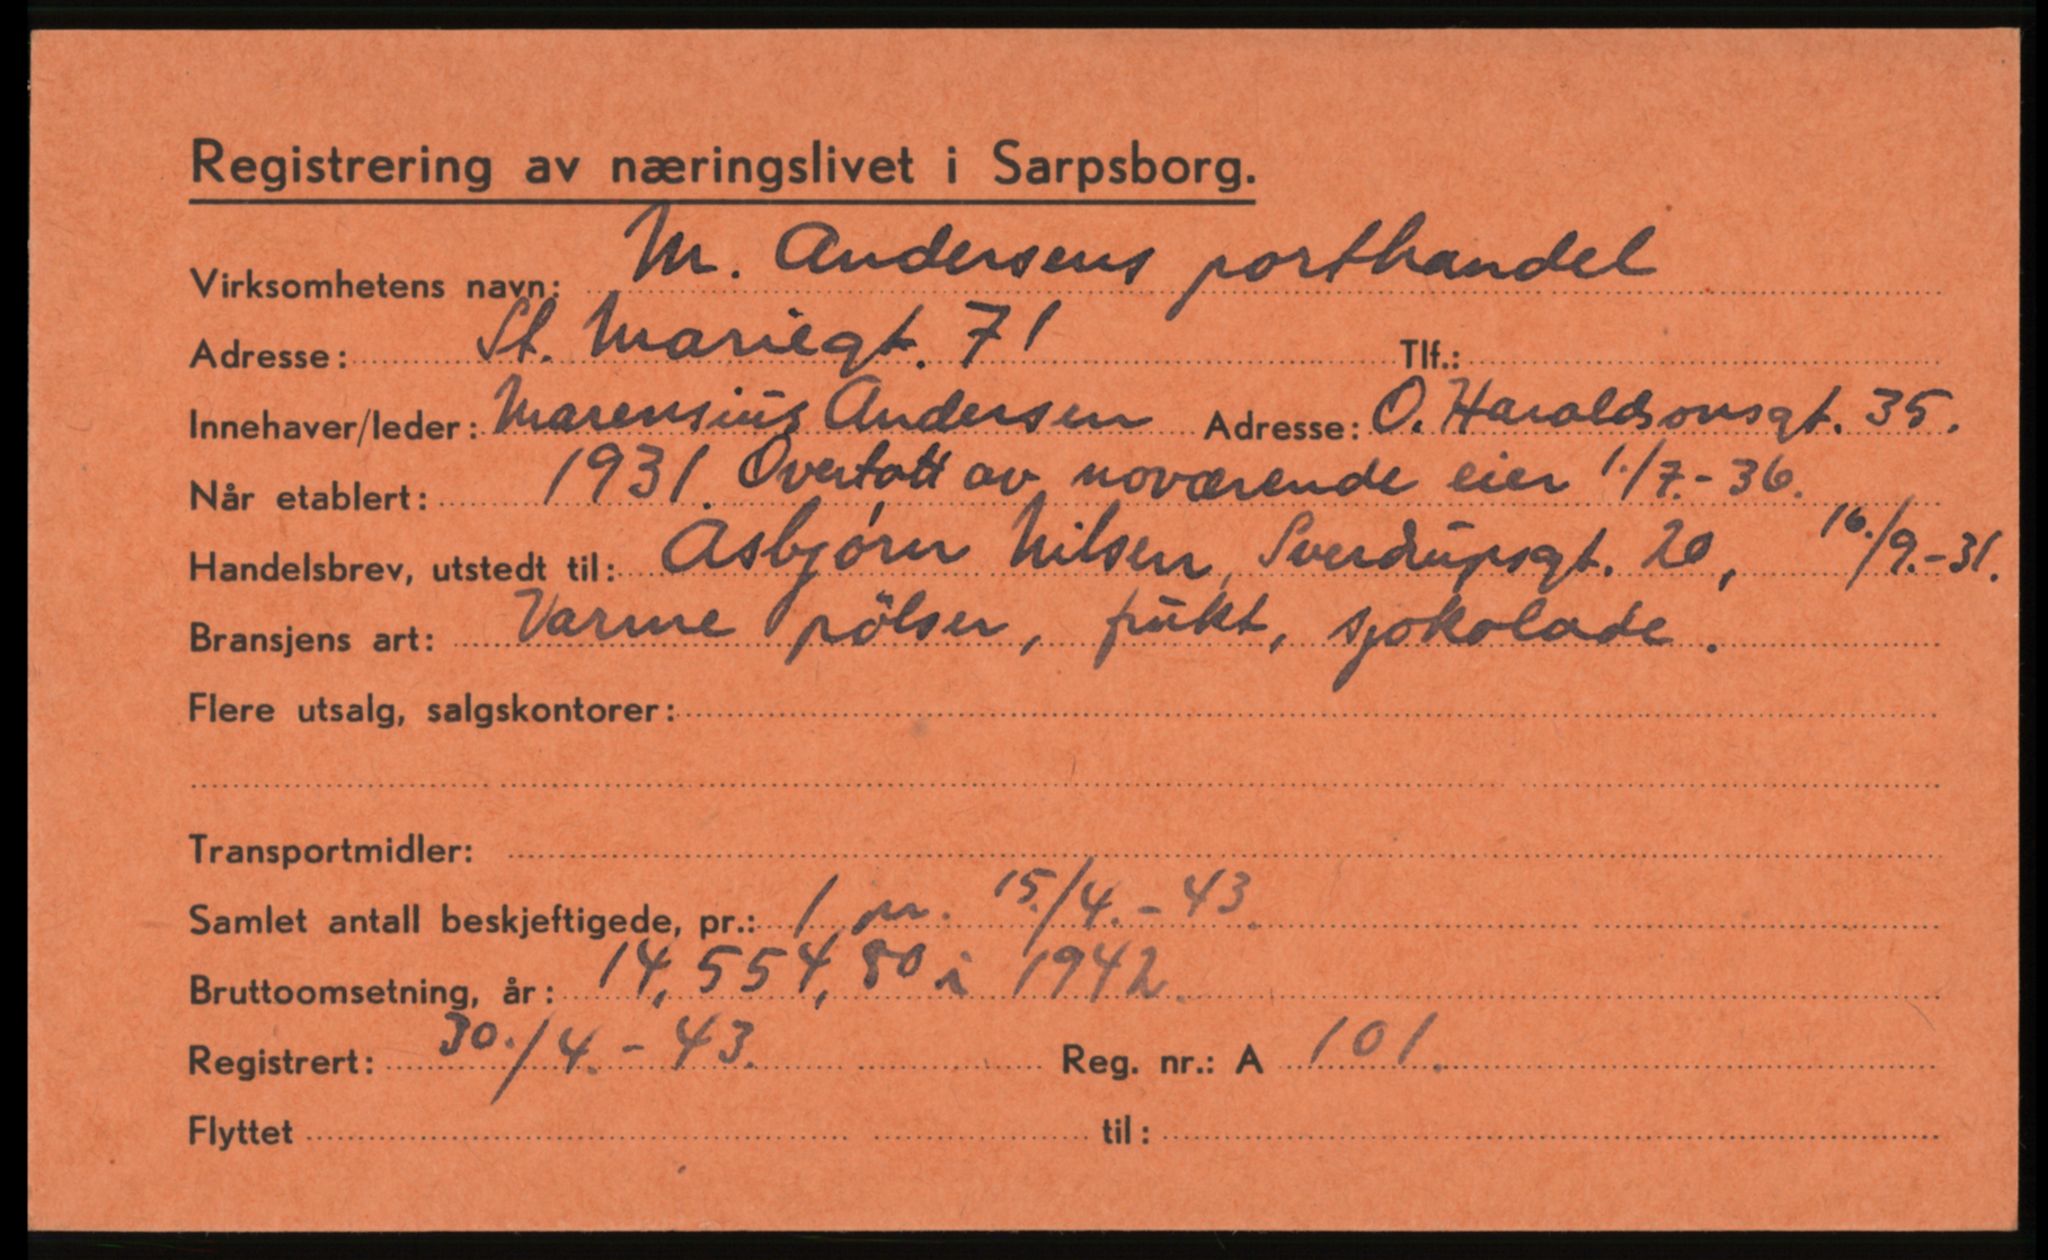 Registrering av næringslivet i Sarpsborg.
Virksomhetens navn: M. Andersens porthandel
Adresse: St. Mariegt. 71 Tlf.:
Innehaver/leder: Marensius Andersen Adresse: O. Haraldsonsgt. 35.
Når etablert: 1931. Overtatt av noværende eier 1./7.-36.
Handelsbrev, utstedt til: Asbjørn Nilsen, Sverdrupsgt. 20, 16./9.-31.
Bransjens art: Varme pölser, frukt, sjokolade.
Flere utsalg, salgskontorer:
Transportmidler:
Samlet antall beskjeftigede, pr.: 1 pr. 15./4.-43.
Bruttoomsetning, år: 14,554,80 i 1942.
Registrert: 30./4.-43. Reg. nr.: A 101.
Flyttet til: